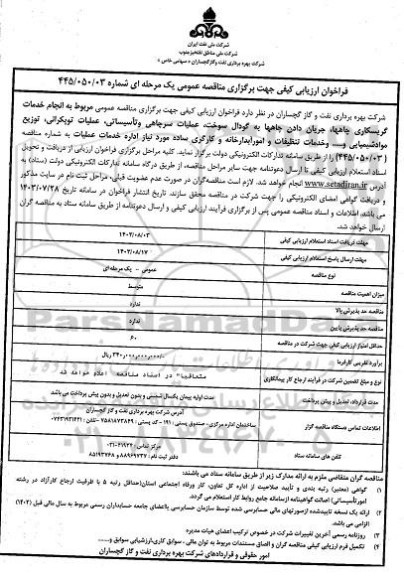 شرکت ملی نفت ایران
شرکت ملی مناطق نفتخیز جنوب
شرکت بهره برداری نفت و گاز گچساران «سهامی خاص»
فراخوان ارزیابی کیفی جهت برگزاری مناقصه عمومی یک مرحله ای شماره ۴۴۵/۰۵۰/۰۳
شرکت بهره برداری نفت و گاز گچساران در نظر دارد فراخوان ارزیابی کیفی جهت برگزاری مناقصه عمومی مربوط به انجام خدمات
گریسکاری چاهها، جریان دادن چاهها به گودال سوخت، عملیات سرچاهی وتأسیساتی، عملیات توپکرانی، توزیع
موادشیمیایی و.... وخدمات تنظیفات و امورآبدارخانه و کارگری ساده مورد نیاز اداره خدمات عملیات به شماره مناقصه
(۴۴۵/۰۵۰/۰۳) را از طریق سامانه تدارکات الکترونیکی دولت برگزار نماید. کلیه مراحل برگزاری فراخوان ارزیابی از دریافت و تحویل
اسناد استعلام ارزیابی کیفی تا ارسال دعوتنامه جهت سایر مراحل مناقصه، از طریق درگاه سامانه تدارکات الکترونیکی دولت (ستاد) به
آدرس www.setadiran.ir انجام خواهد شد. لازم است مناقصه‌گران در صورت عدم عضویت قبلی، مراحل ثبت نام در سایت مذکور
و دریافت گواهی امضای الکترونیکی را جهت شرکت در مناقصه محقق سازند. تاریخ انتشار فراخوان در سامانه تاریخ ۱۴۰۳/۰۷/۲۸
می باشد. اطلاعات و اسناد مناقصه عمومی پس از برگزاری فرآیند ارزیابی کیفی و ارسال دعوتنامه از طریق سامانه ستاد به مناقصه گران
ارسال خواهد شد.
مهلت دریافت اسناد استعلام ارزیابی کیفی ۱۴۰۳/۰۸/۰۳
مهلت ارسال پاسخ استعلام ارزیابی کیفی ۱۴۰۳/۰۸/۱۷
نوع مناقصه عمومی - یک مرحله‌ای
میزان اهمیت مناقصه متوسط
مناقصه حد پذیرش بالا ندارد
مناقصه حد پذیرش پایین ندارد
حداقل امتیاز ارزیابی کیفی جهت شرکت در مناقصه ۶۰
برآورد تقریبی کارفرما ریال
نوع و مبلغ تضمین شرکت در فرآیند ارجاع کار پیمانکاری متعاقباً در اسناد مناقصه اعلام خواهد شد
مدت قرارداد، تعدیل و پیش پرداخت مدت اولیه پیمان یکسال شمسی و بدون تعدیل و بدون پیش پرداخت می باشد
اطلاعات تماس دستگاه مناقصه گزار آدرس شرکت بهره برداری نفت و گاز گچساران
ساختمان اداره مرکزی- صندوق پستی : ۱۹۱ - کد پستی : ۷۵۸۱۸۷۳۸۴۹ - تلفن :
تلفن های سامانه ستاد مرکز تماس : ۴۱۹۳۴-۰۲۱
دفتر ثبت نام : ۸۸۹۶۹۷۳۷ و ۸۵۱۹۳۷۶۸
مناقصه گران متقاضی ملزم به ارائه مدارک زیر از طریق سامانه ستاد می باشند:
۱) گواهی (معتبر) رتبه بندی و تأیید صلاحیت از اداره کل تعاون، کار ورفاه اجتماعی استان(حداقل رتبه ۵ با ظرفیت ارجاع کارآزاد در رشته
امورتأسیساتی) اصالت گواهینامه ازسامانه جامع روابط کار استعلام می گردد.
۲) ارائه یک نسخه تاییدشده ازصورتهای مالی حسابرسی شده توسط سازمان حسابرسی یااعضای جامعه حسابداران رسمی مربوط به سال مالی قبل (۱۴۰۲)
الزامی می باشد.
۳) روزنامه رسمی آخرین تغییرات شرکت در خصوص ترکیب اعضاء هیات مدیره
۴) تکمیل فرم ارزیابی کیفی مناقصه گران و الصاق مستندات مربوط به توان مالی ، سوابق کاری،ارزشیابی سوابق و......
امور حقوقی و قراردادهای شرکت بهره برداری نفت و گاز گچساران